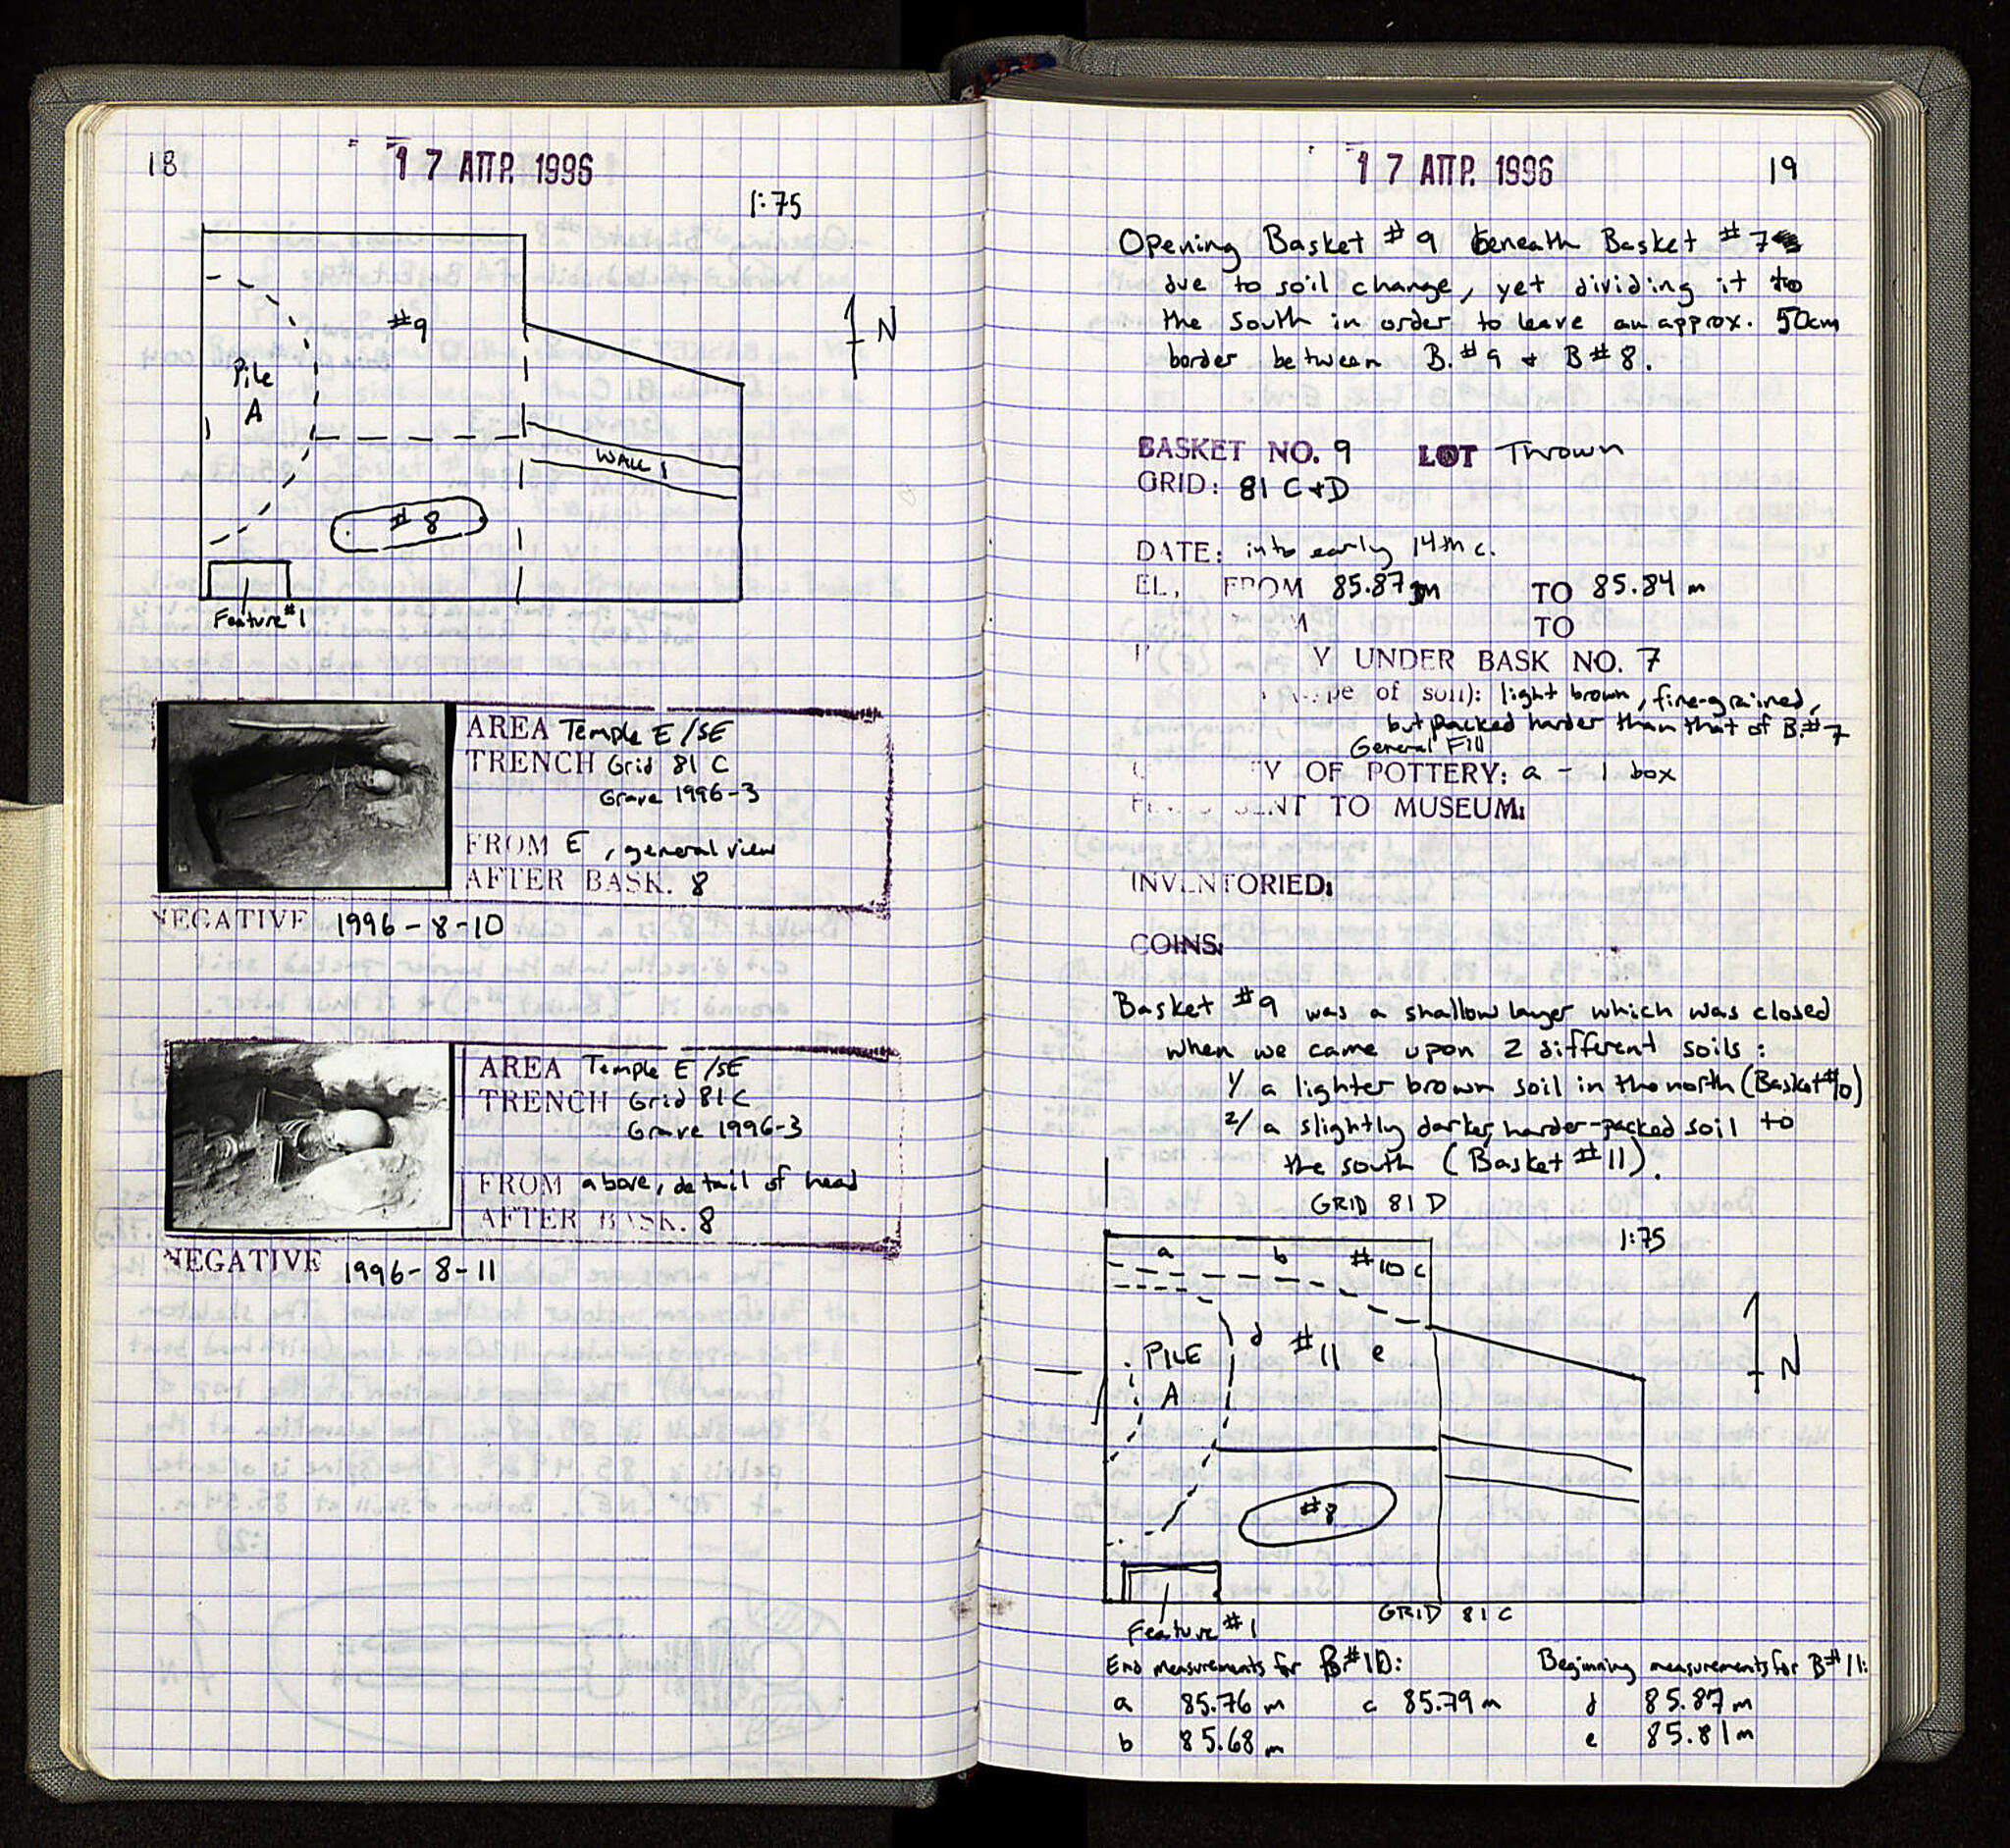 18
17 ΑΠΡ. 1996
1:75
#9
N
Pile
A
WALL 1
#8
Feature #1
AREA Temple E/SE
TRENCH Grid 81 C
Grave 1996-3
FROM E, general view
AFTER BASK. 8
NEGATIVE 1996-8-10
AREA Temple E/SE
TRENCH Grid 81C
Grave 1996-3
FROM above, detail of head
AFTER BASK. 8
NEGATIVE 1996-8-11
17 ΑΠΡ. 1996
19
Opening Basket #9 beneath Basket #7
due to soil change, yet dividing it to
the south in order to leave an approx. 50cm
border between B.#9 + B#8.
BASKET NO. 9 LOT Thrown
GRID: 81 C+D
DATE: into early 14th c.
EL, FROM 85.87m TO 85.84 m
M TO
Y UNDER BASK NO. 7
pe of soil): light brown, fine-grained,
but packed harder than that of B.#7
General Fill
TY OF POTTERY: a - 1 box
SENT TO MUSEUM:
INVENTORIED:
COINS:
Basket #9 was a shallow layer which was closed
when we came upon 2 different soils:
1/ a lighter brown soil in the north (Basket #10)
2/ a slightly darker, harder-packed soil to
the south (Basket #11).
GRID 81 D
1:75
a b #10 c
d #11 e
PILE
A
N
#8
GRID 81 C
Feature #1
End measurements for B#10: Beginning measurements for B#11:
a 85.76 m c 85.79 m d 85.87 m
b 85.68 m e 85.81 m